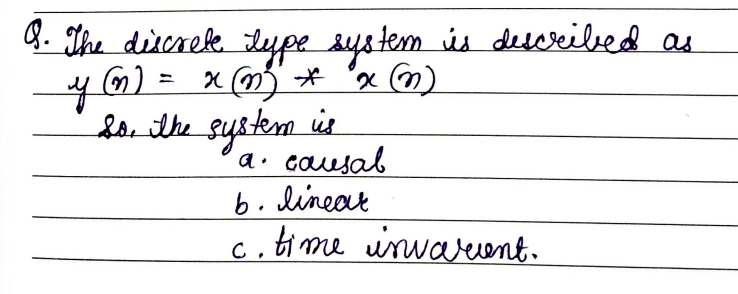 Q. The discrete type system is described as
y (n) = x (n) * x (n)
So, the system is
a. causal
b. linear
c. time invarient.